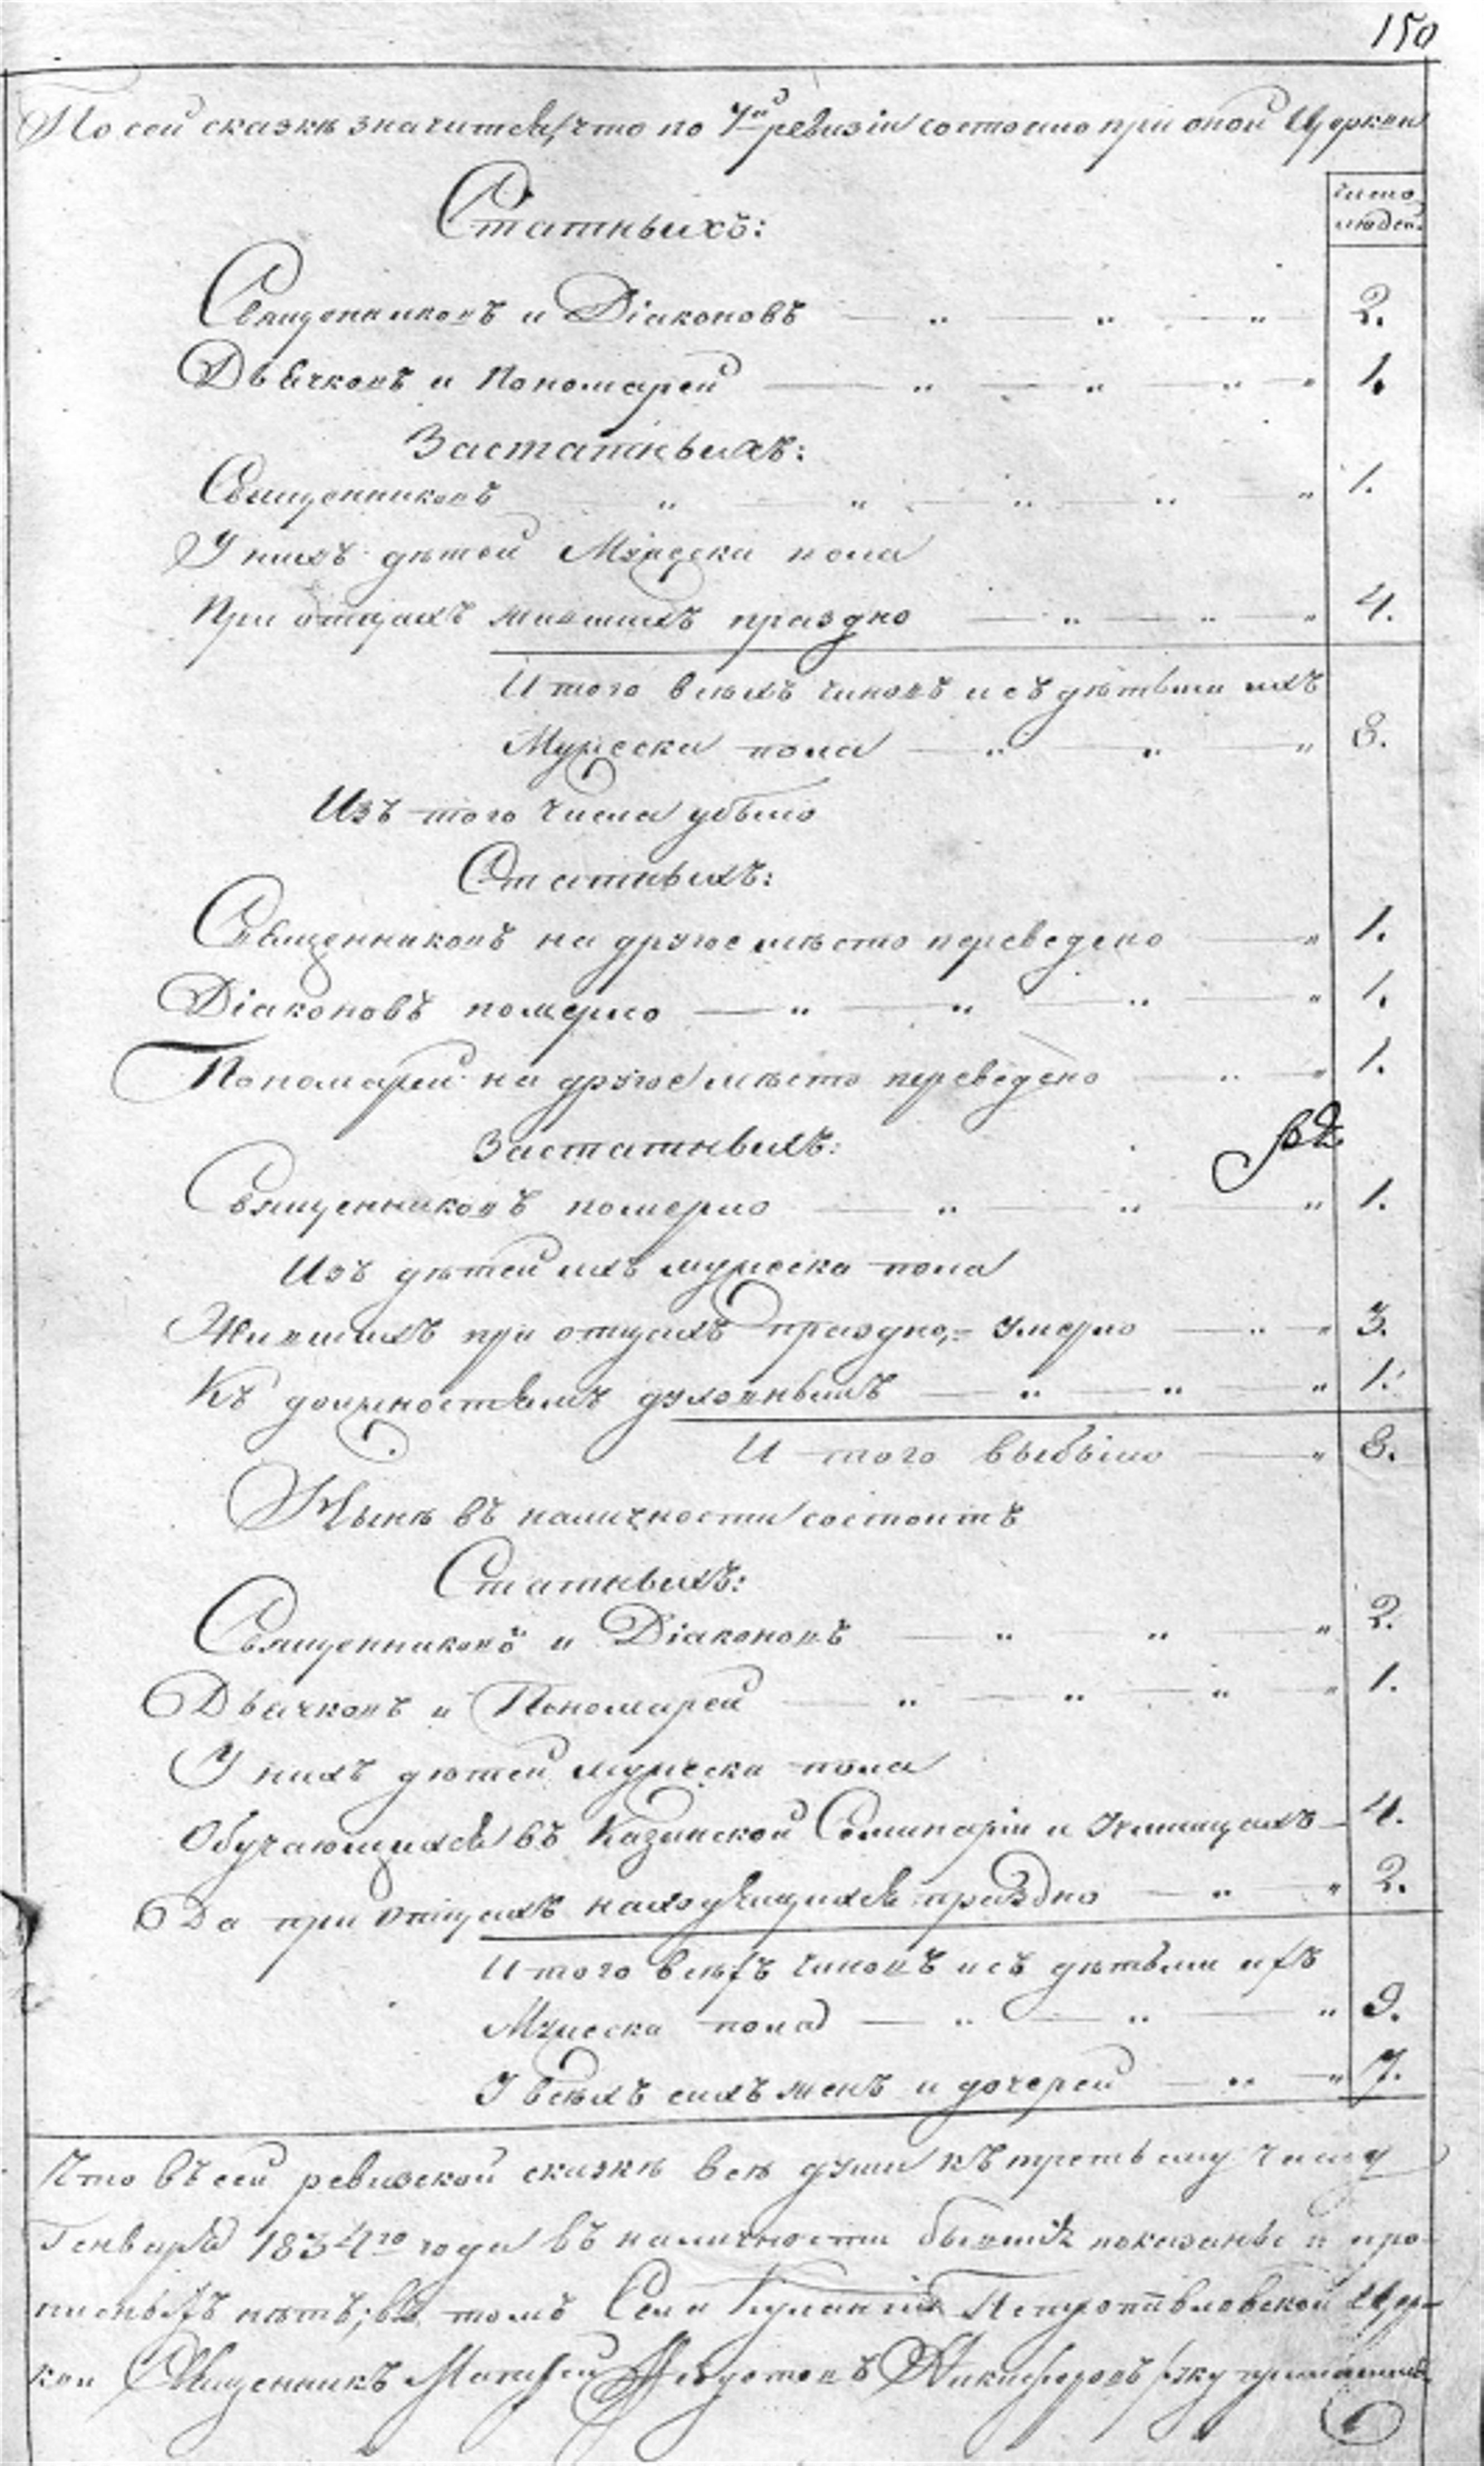 150
По сей сказкѣ значится, что по 7й ревизіи состояло при оной Церкви
Число людей.
Статныхъ:
Священниковъ и Діаконовъ — „ — „ — „ 2.
Дьячковъ и Пономарей — „ — „ — „ — „ 1.
Застатныхъ:
Священниковъ „ — „ — „ — „ — „ 1.
У нихъ дѣтей Мужеска пола
При отцахъ жившихъ праздно — „ — „ — „ 4.
Итого всѣхъ чиновъ и съ дѣтьми ихъ
Мужеска пола — „ „ „ 8.
Изъ того числа убыло
Статныхъ:
Священниковъ на другое мѣсто переведено — „ 1.
Діаконовъ померло — „ — „ — „ — „ 1.
Пономарей на другое мѣсто переведено — „ — „ 1.
Застатныхъ:
Священниковъ померло — „ — „ — „ 1.
Изъ дѣтей ихъ мужеска пола
Жившихъ при отцахъ праздно, = умерло — „ — „ 3.
Къ должностямъ духовнымъ — „ — „ — „ 1.
Итого выбыло — „ 8.
Нынѣ въ наличности состоитъ
Статныхъ:
Священниковъ и Діаконовъ — „ „ — „ 2.
Дьячковъ и Пономарей — „ — „ — „ — „ 1.
У нихъ дѣтей мужеска пола
Обучающихся въ Казанской Семинаріи и Училищахъ — 4.
Да при Отцахъ находящихся праздно — „ — „ 2.
Итого всѣхъ чиновъ и съ дѣтьми ихъ
Мужеска пола — „ — „ — „ 9.
У всѣхъ сихъ женъ и дочерей — „ — „ 7.
Что въ сей ревизской сказкѣ всѣ души къ третьему числу
Генваря 1834го года въ наличности бывшія показаны и про-
писныхъ нѣтъ; въ томъ Села Петропавловской Цер-
кви Священникъ Матфей Федотовъ Никифоровъ руку приложилъ